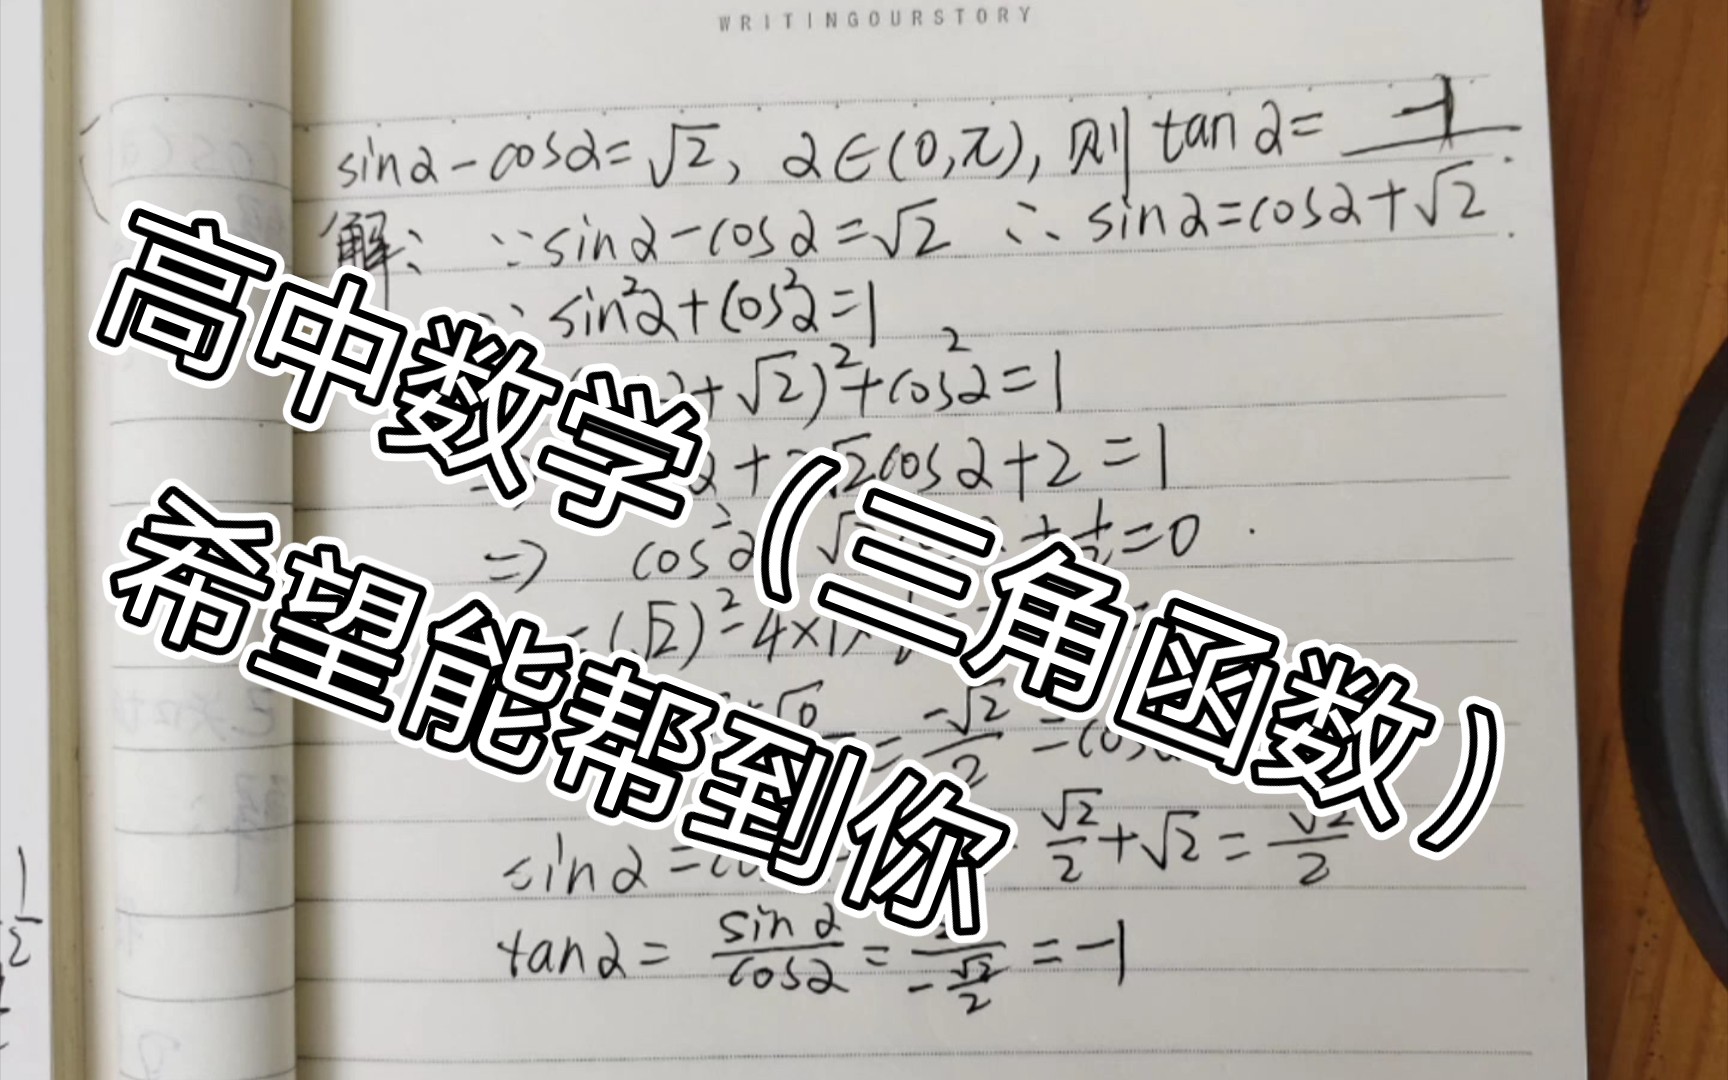 WRITINGOURSTORY
sinα-cosα=√2, α∈(0,π), 则 tanα= -1
解: ∵sinα-cosα=√2 ∴ sinα=cosα+√2
∵ sin²α+cos²α=1
+√2)²+cos²α=1
+2√2cosα+2=1
⇒ cos²α
=0
(√2)²-4×1×
= -√2/2 =cosα
sinα=
√2/2+√2=√2/2
tanα= sinα/cosα = / -√2/2 =-1
高中数学（三角函数）
希望能帮到你
1/2